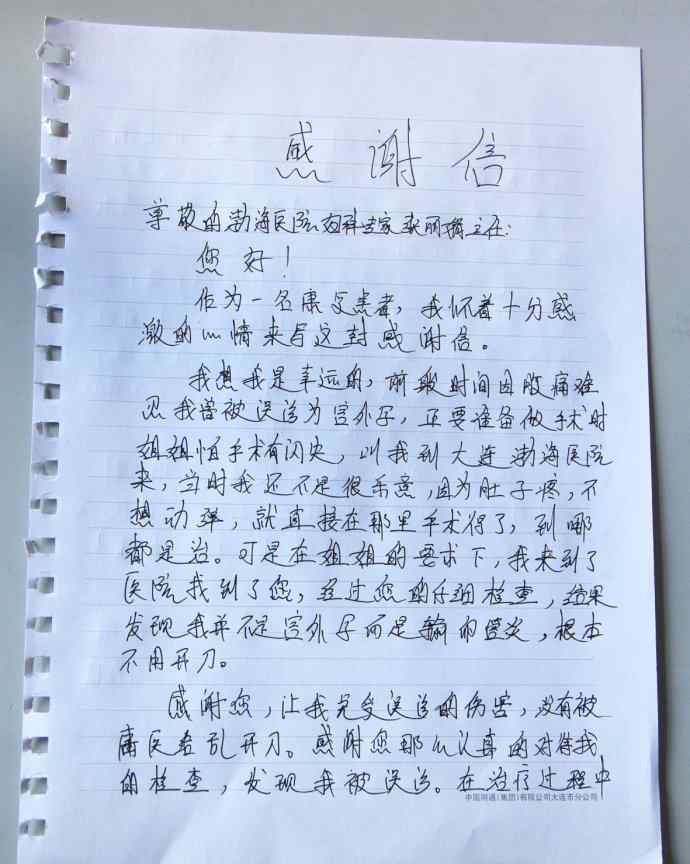 感谢信
尊敬的渤海医院妇科专家张丽梅主任:
您好!
作为一名康复患者,我怀着十分感
激的心情来写这封感谢信。
我想我是幸运的,前段时间因腹痛难
忍我曾被误诊为宫外孕,正要准备做手术时
姐姐怕手术有闪失,叫我到大连渤海医院
来,当时我还不是很乐意,因为肚子疼,不
想动弹,就直接在那里手术得了,到哪
都是治。可是在姐姐的要求下,我来到了
医院找到了您,经过您的仔细检查,结果
发现我并不是宫外孕而是输卵管炎,根本
不用开刀。
感谢您,让我免受误诊的伤害,没有被
庸医乱开刀。感谢您那么认真的对待我
的检查,发现我被误诊。在治疗过程中
中国网通(集团)有限公司大连市分公司